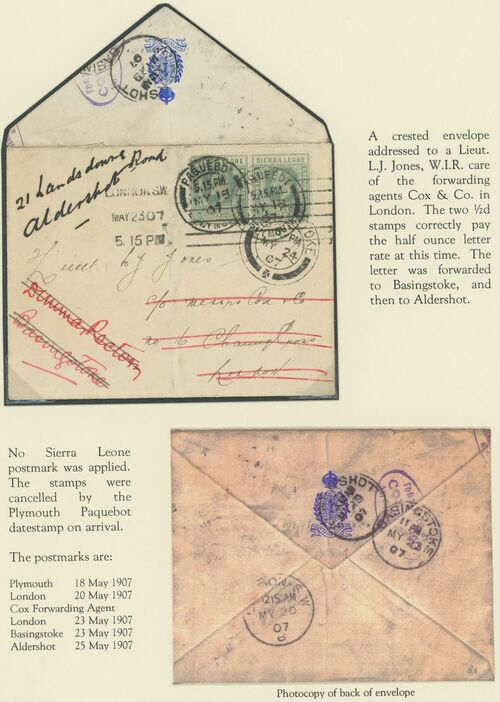 A crested envelope
addressed to a Lieut.
L.J. Jones, W.I.R. care
of the forwarding
agents Cox & Co. in
London. The two ½d
stamps correctly pay
the half ounce letter
rate at this time. The
letter was forwarded
to Basingstoke, and
then to Aldershot.
21 Lansdowne
Aldershot Road
SIERRA LEONE
PAQUEBOT
5.15 PM
LONDON.S.W.
MAY 23 07
5. 15 PM
Lieut L J Jones
c/o Messrs Cox & Co
No 16 Charing Cross
London
Basingstoke
No Sierra Leone
postmark was applied.
The stamps were
cancelled by the
Plymouth Paquebot
datestamp on arrival.
The postmarks are:
Plymouth 18 May 1907
London 20 May 1907
Cox Forwarding Agent
London 23 May 1907
Basingstoke 23 May 1907
Aldershot 25 May 1907
BASINGSTOKE
11 PM
MY 23
07
12.15 AM
MY 20
07
Photocopy of back of envelope